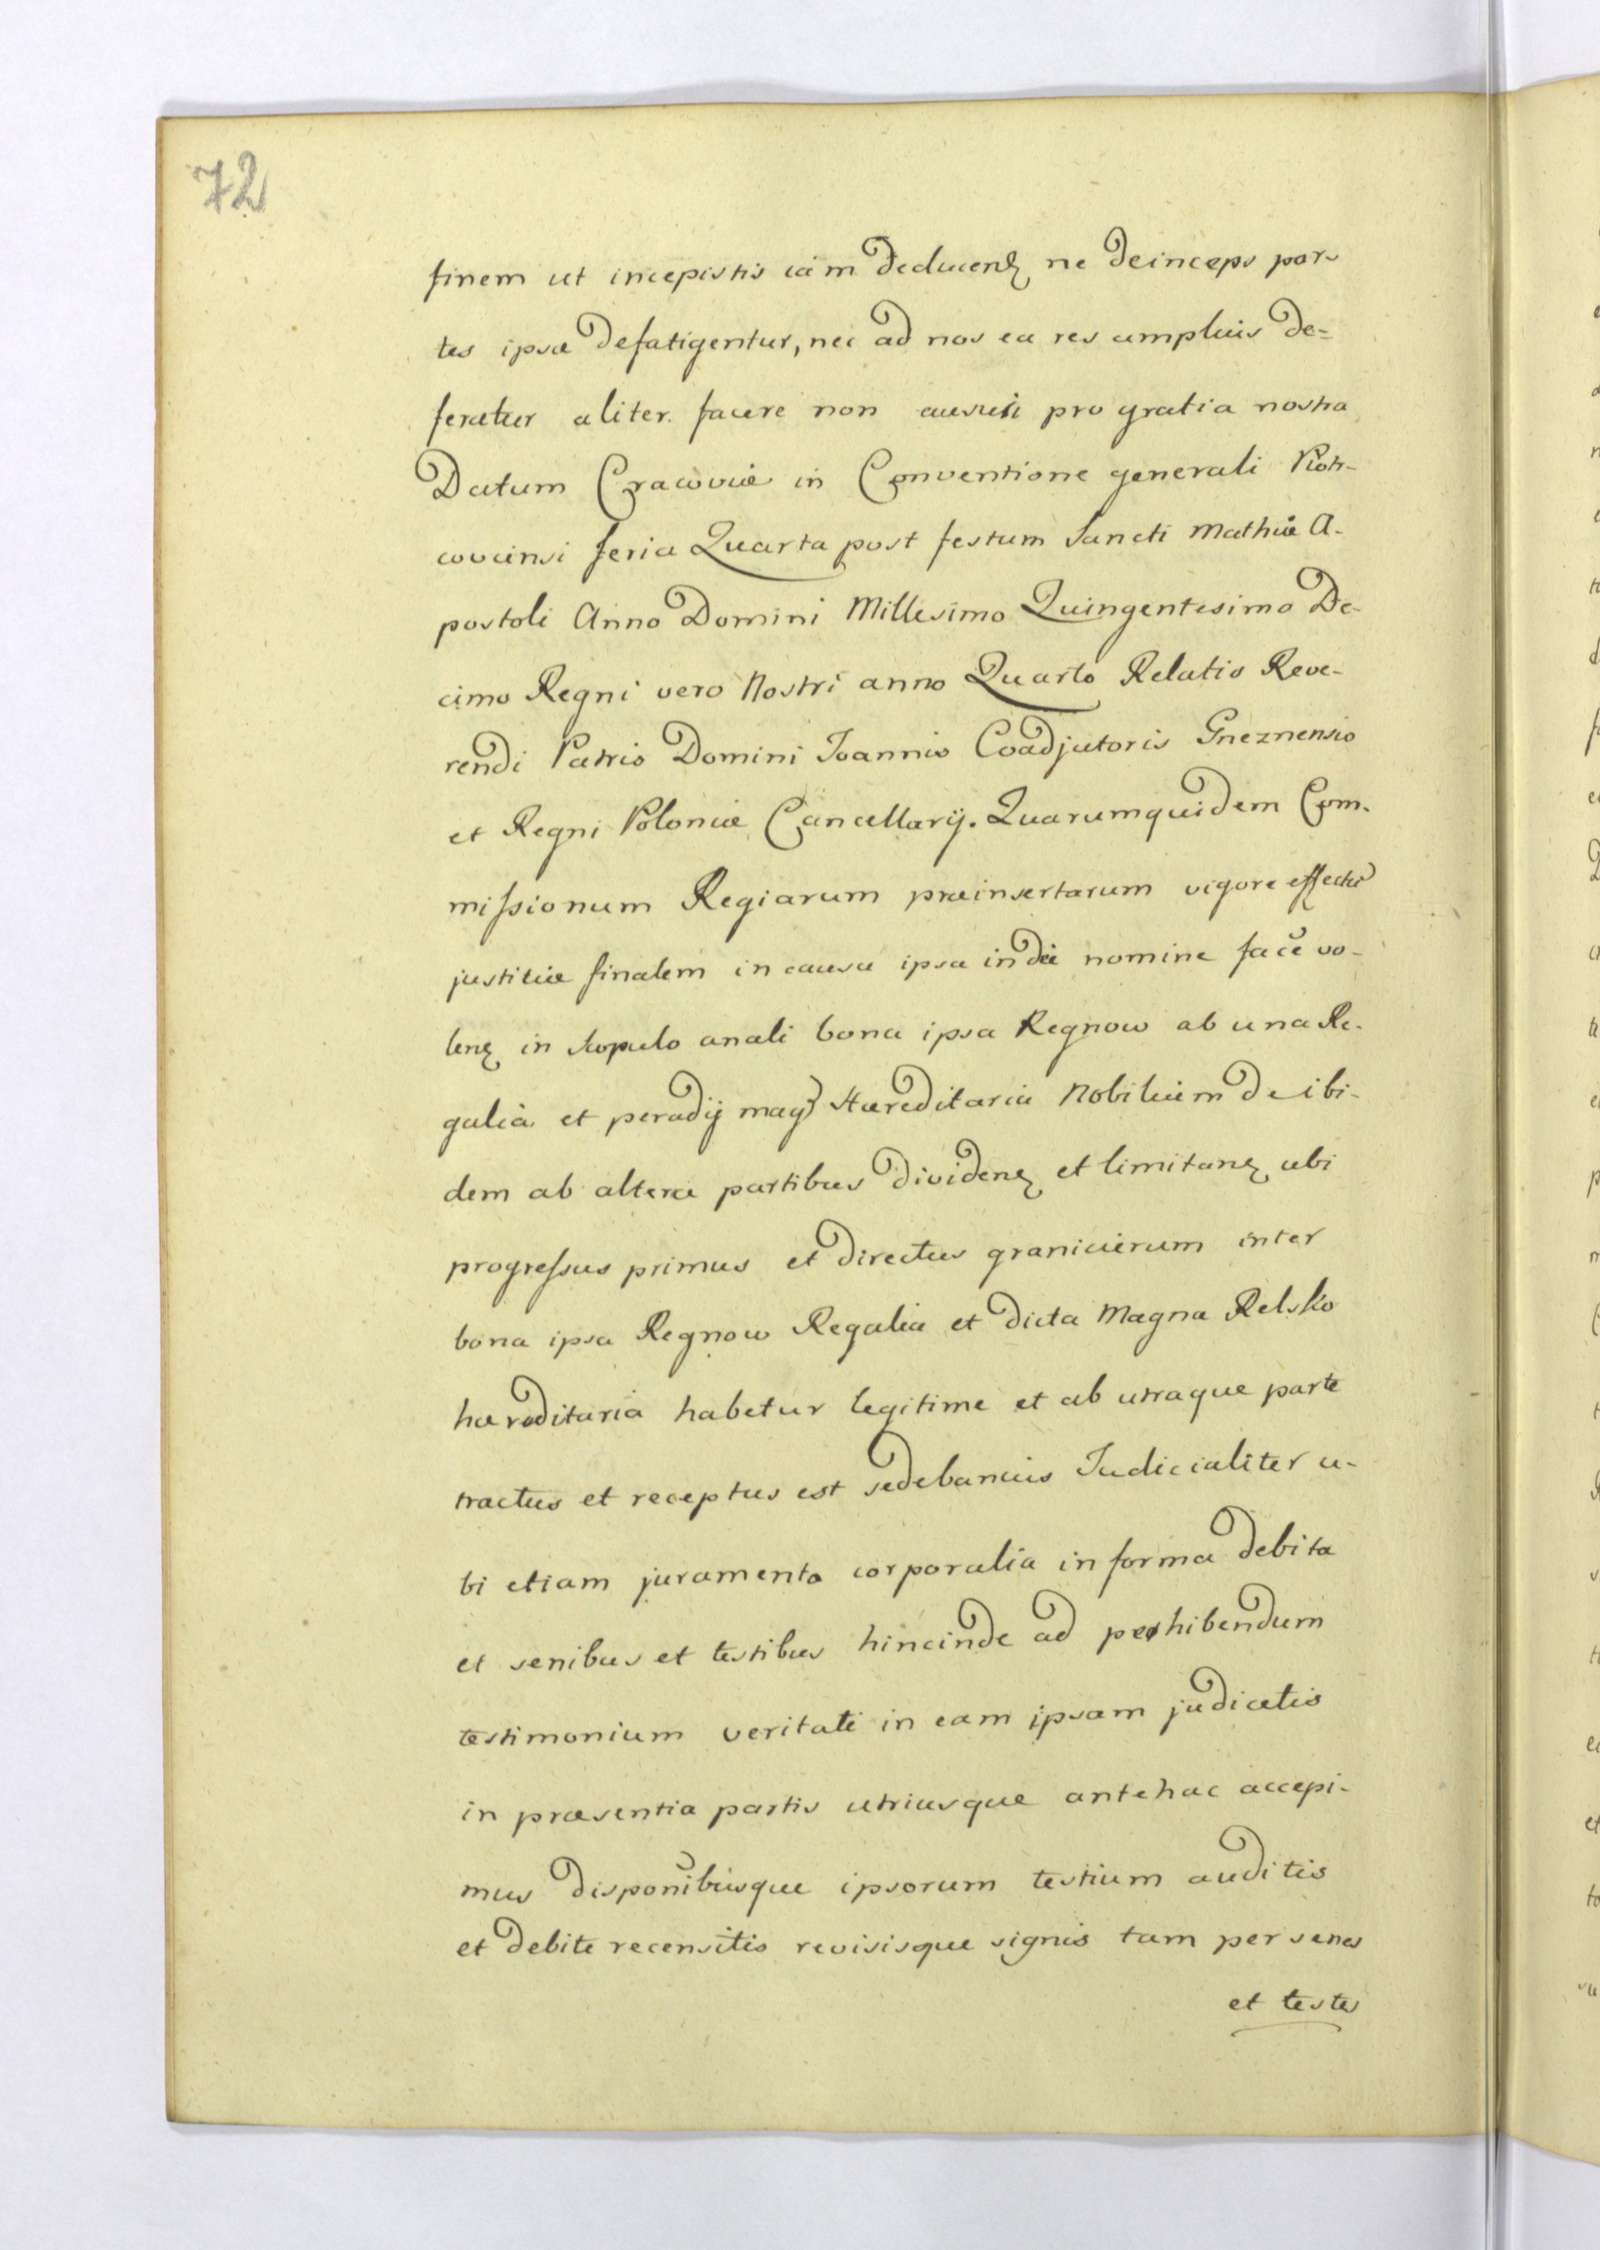 72
finem ut incepistis iam deducenꝝ ne deinceps par-
tes ipsæ defatigentur, nec ad nos ea res amplius de-
feratur aliter facere non ausuri pro gratia nostra
Datum Cracoviæ in Conventione generali Piotr-
coviensi feria Quarta post festum Sancti Mathiæ A-
postoli Anno Domini Millesimo Quingentesimo De-
cimo Regni vero Nostri anno Quarto Relatio Reve-
rendi Patris Domini Joannis Coadjutoris Gneznensis
et Regni Poloniæ Cancellarij. Quarumquidem Com-
missionum Regiarum præinsertarum vigore effectū
justitiæ finalem in causa ipsa in dei nomine facē vo-
lenꝝ in scopulo anali bona ipsa Regnow ab una Re-
galia et Hæreditaria Nobilium de ibi-
dem ab altera partibus dividenꝝ et limitanꝝ ubi
progressus primus et directus granicierum inter
bona ipsa Regnow Regalia et dicta Magna Relsko
hæreditaria habetur legitime et ab utraque parte
tractus et receptus est sedebamus Judicialiter u-
bi etiam juramento corporalia in forma debita
et senibus et testibus hincinde ad perhibendum
testimonium veritati in eam ipsam judicatis
in præsentia partis utriusque antehac accepi-
mus disponībusque ipsorum testium auditis
et debite recensitis revisisque signis tam per senes
et testes